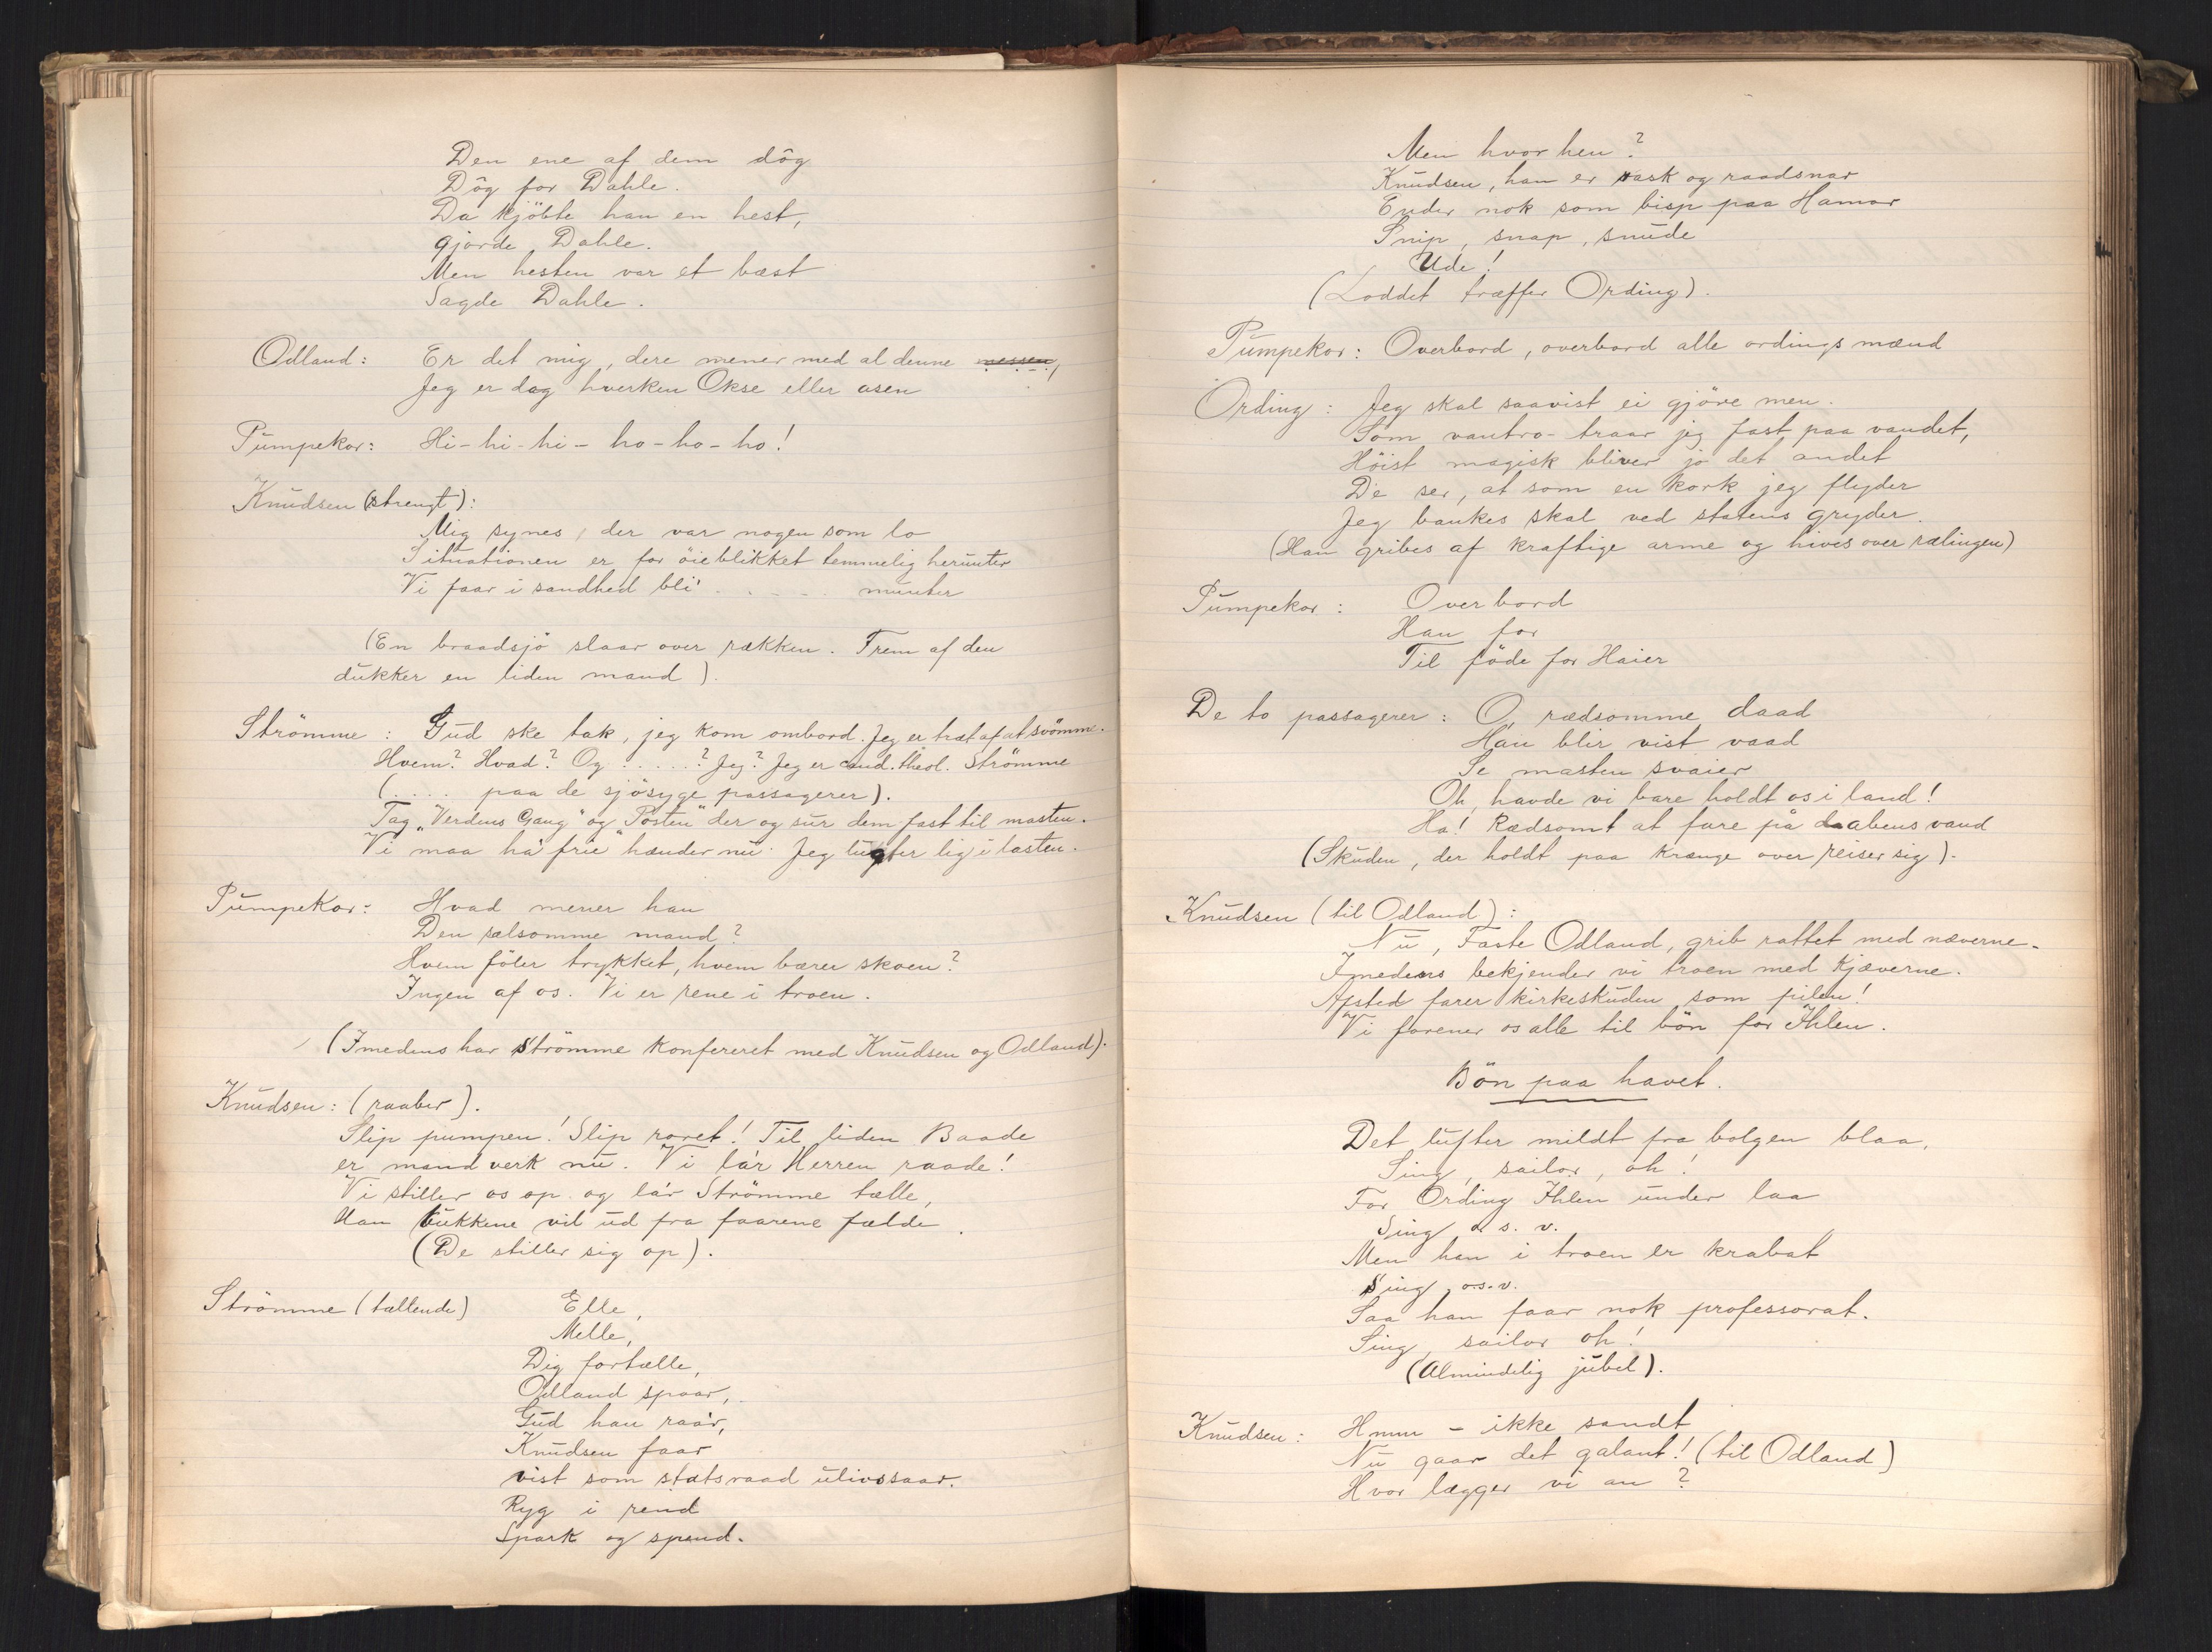 Den ene af dem dôg
Dôg for Dahle.
Da kjöbte han en hest,
gjorde Dahle.
Men hesten var et bæst
Sagde Dahle.
Odland: Er det mig, dere mener med al denne messen,
Jeg er dog hverken Okse eller asen
Pumpekor: Hi-hi-hi- ho-ho-ho!
Knudsen (strengt):
Mig synes, der var nogen som lo
Situationen er for öieblikket temmelig herunter
Vi faar i sandhed bli' . . . . . munter
(En braadsjö slaar over rækken. Frem af den
dukker en liden mand).
Strömme: Gud ske tak, jeg kom ombord. Jeg er træt af at svömme.
Hvem? Hvad? Og . . . . . ? Jeg? Jeg er cand. theol. Strömme
(. . . . paa de sjösyge passagerer).
Tag „Verdens Gang" og „Posten" der og sur dem fast til masten.
Vi maa ha' frie hænder nu. Jeg lugter lig i lasten.
Pumpekor: Hvad mener han
Den sælsomme mand?
Hvem föler trykket, hvem bærer skoen?
Ingen af os. Vi er rene i troen.
(Imedens har Strömme konfereret med Knudsen og Odland).
Knudsen: (raaber).
Slip pumpen! Slip roret! Til liden Baade
er mandverk nu. Vi la'r Herren raade!
Vi stiller os op og la'r Strömme tælle,
Han bukkene vil ud fra faarene fælde.
(De stiller sig op).
Strömme (tællende) Elle,
Melle,
Dig fortælle,
Odland spaar,
Gud han raa'r,
Knudsen faar
vist som statsraad ulivssaar.
Ryg i rend
Spark og spend.
Men hvor hen?
Knudsen, han er rask og raadsnar
Ender nok som bisp paa Hamar
Snip, snap, snude
Ude!
(Loddet træffer Ording).
Pumpekor: Overbord, overbord alle ordings mænd
Ording: Jeg skal saavist ei gjöre men.
Som vantro- traar jeg fast paa vandet,
Höist magisk bliver jo det andet
De ser, at som en kork jeg flyder
Jeg bankes skal ved statens gryder.
(Han gribes af kraftige arme og hives over rælingen)
Pumpekor: Overbord
Han for
Til föde for Haier
De to passagerer: O, rædsomme daad
Han blir vist vaad
Se masten svaier
Oh, havde vi bare holdt os i land!
Ha! Rædsomt at fare på daabens vand
(Skuden, der holdt paa krænge over reiser sig).
Knudsen (til Odland):
Nu, Faste Odland, grib rattet med næverne.
Imedens bekjender vi troen med kjæverne.
Afsted farer kirkeskuden som pilen!
Vi forener os alle til bön for Ihlen.
Bön paa havet.
Det lufter mildt fra bolgen blaa.
Sing, sailor, oh!
For Ording Ihlen under laa
Sing o. s. v.
Men han i troen er krabat
Sing, o.s.v.
Saa han faar nok professorat.
Sing, sailor oh!
(Almindelig jubel).
Knudsen: Hmm - ikke sandt
Nu gaar det galant! (til Odland)
Hvor lægger vi an?